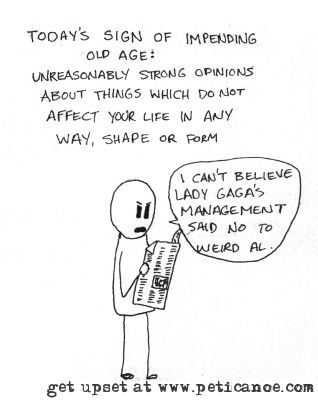 TODAY'S SIGN OF IMPENDING
OLD AGE:
UNREASONABLY STRONG OPINIONS
ABOUT THINGS WHICH DO NOT
AFFECT YOUR LIFE IN ANY
WAY, SHAPE OR FORM
I CAN'T BELIEVE
LADY GAGA'S
MANAGEMENT
SAID NO TO
WEIRD AL.
get upset at www.peticanoe.com